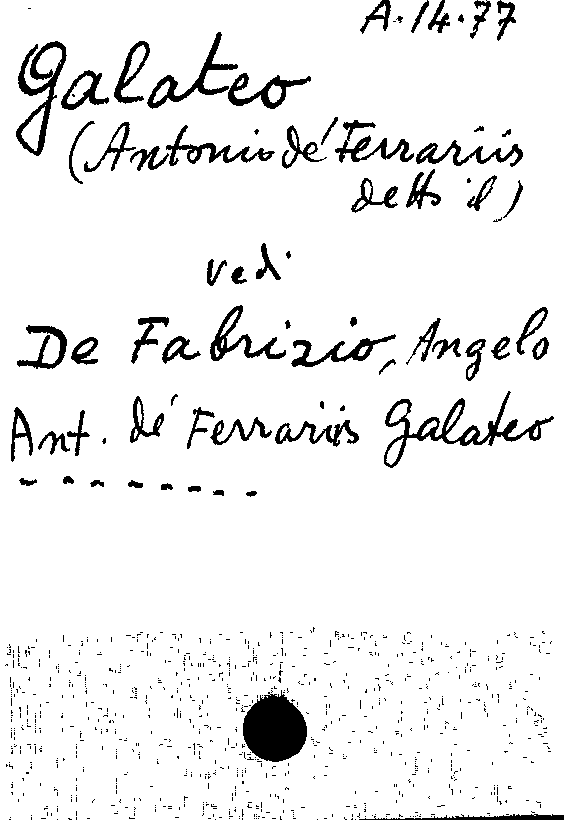 A.14.77
Galateo
(Antonio dé Ferrariis
detto il)
vedi
De Fabrizio, Angelo
Ant. dé Ferrariis Galateo
- - - - - - - -